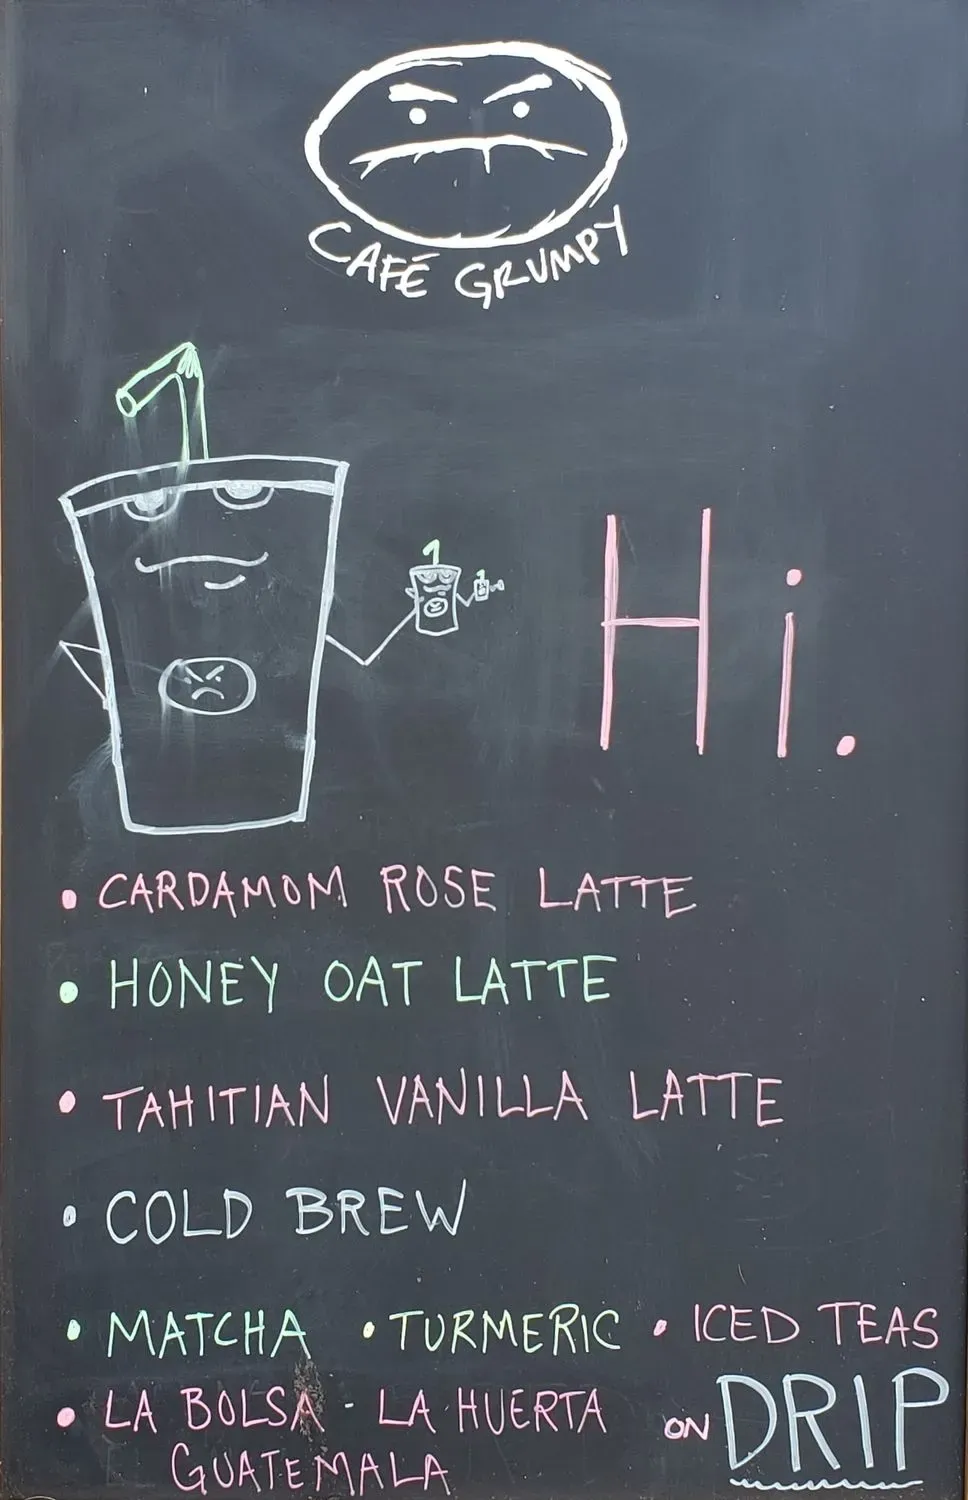 CAFÉ GRUMPY
Hi.
• CARDAMOM ROSE LATTE
• HONEY OAT LATTE
• TAHITIAN VANILLA LATTE
• COLD BREW
• MATCHA • TURMERIC • ICED TEAS
• LA BOLSA - LA HUERTA ON DRIP
GUATEMALA